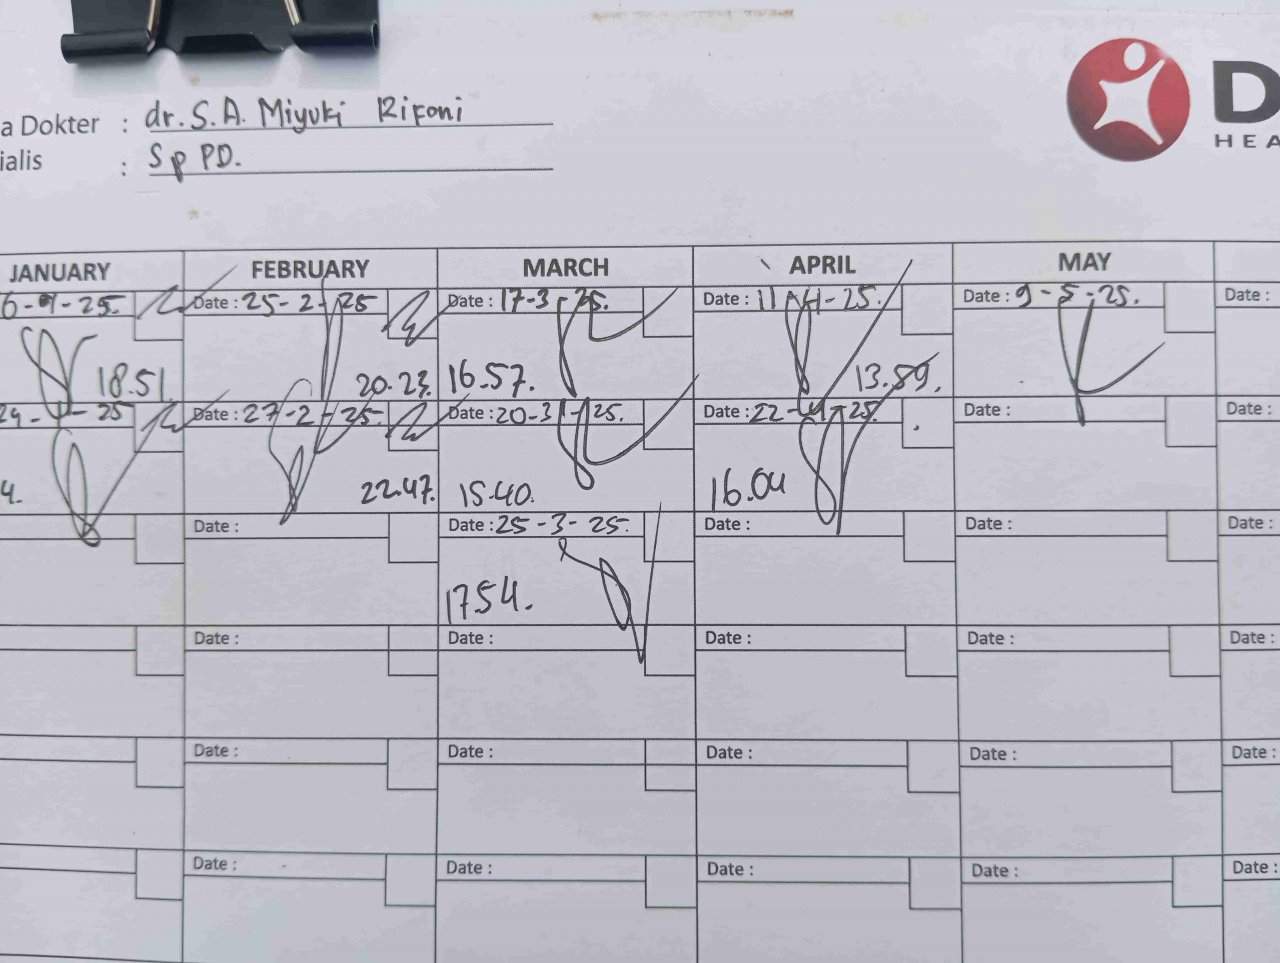 a Dokter : dr. S. A. Miyuki Rifoni
ialis : Sp PD.
D
HEA
JANUARY FEBRUARY MARCH APRIL MAY
6-1-25. Date : 25-2-25 Date : 17-3-25. Date : 11-4-25. Date : 9-5-25. Date :
18.51 20.23. 16.57. 13.59.
24-1-25 Date : 27-2-25. Date : 20-3-25. Date : 22-4-25. Date : Date :
4. 22.47. 15.40. 16.04
Date : Date : 25-3-25. Date : Date : Date :
17.54.
Date : Date : Date : Date : Date :
Date : Date : Date : Date : Date :
Date : Date : Date : Date : Date :